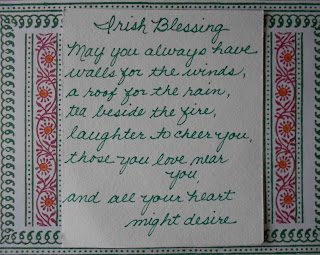 Irish Blessing
May you always have
walls for the winds,
a roof for the rain,
tea beside the fire,
laughter to cheer you,
those you love near
you,
and all your heart
might desire